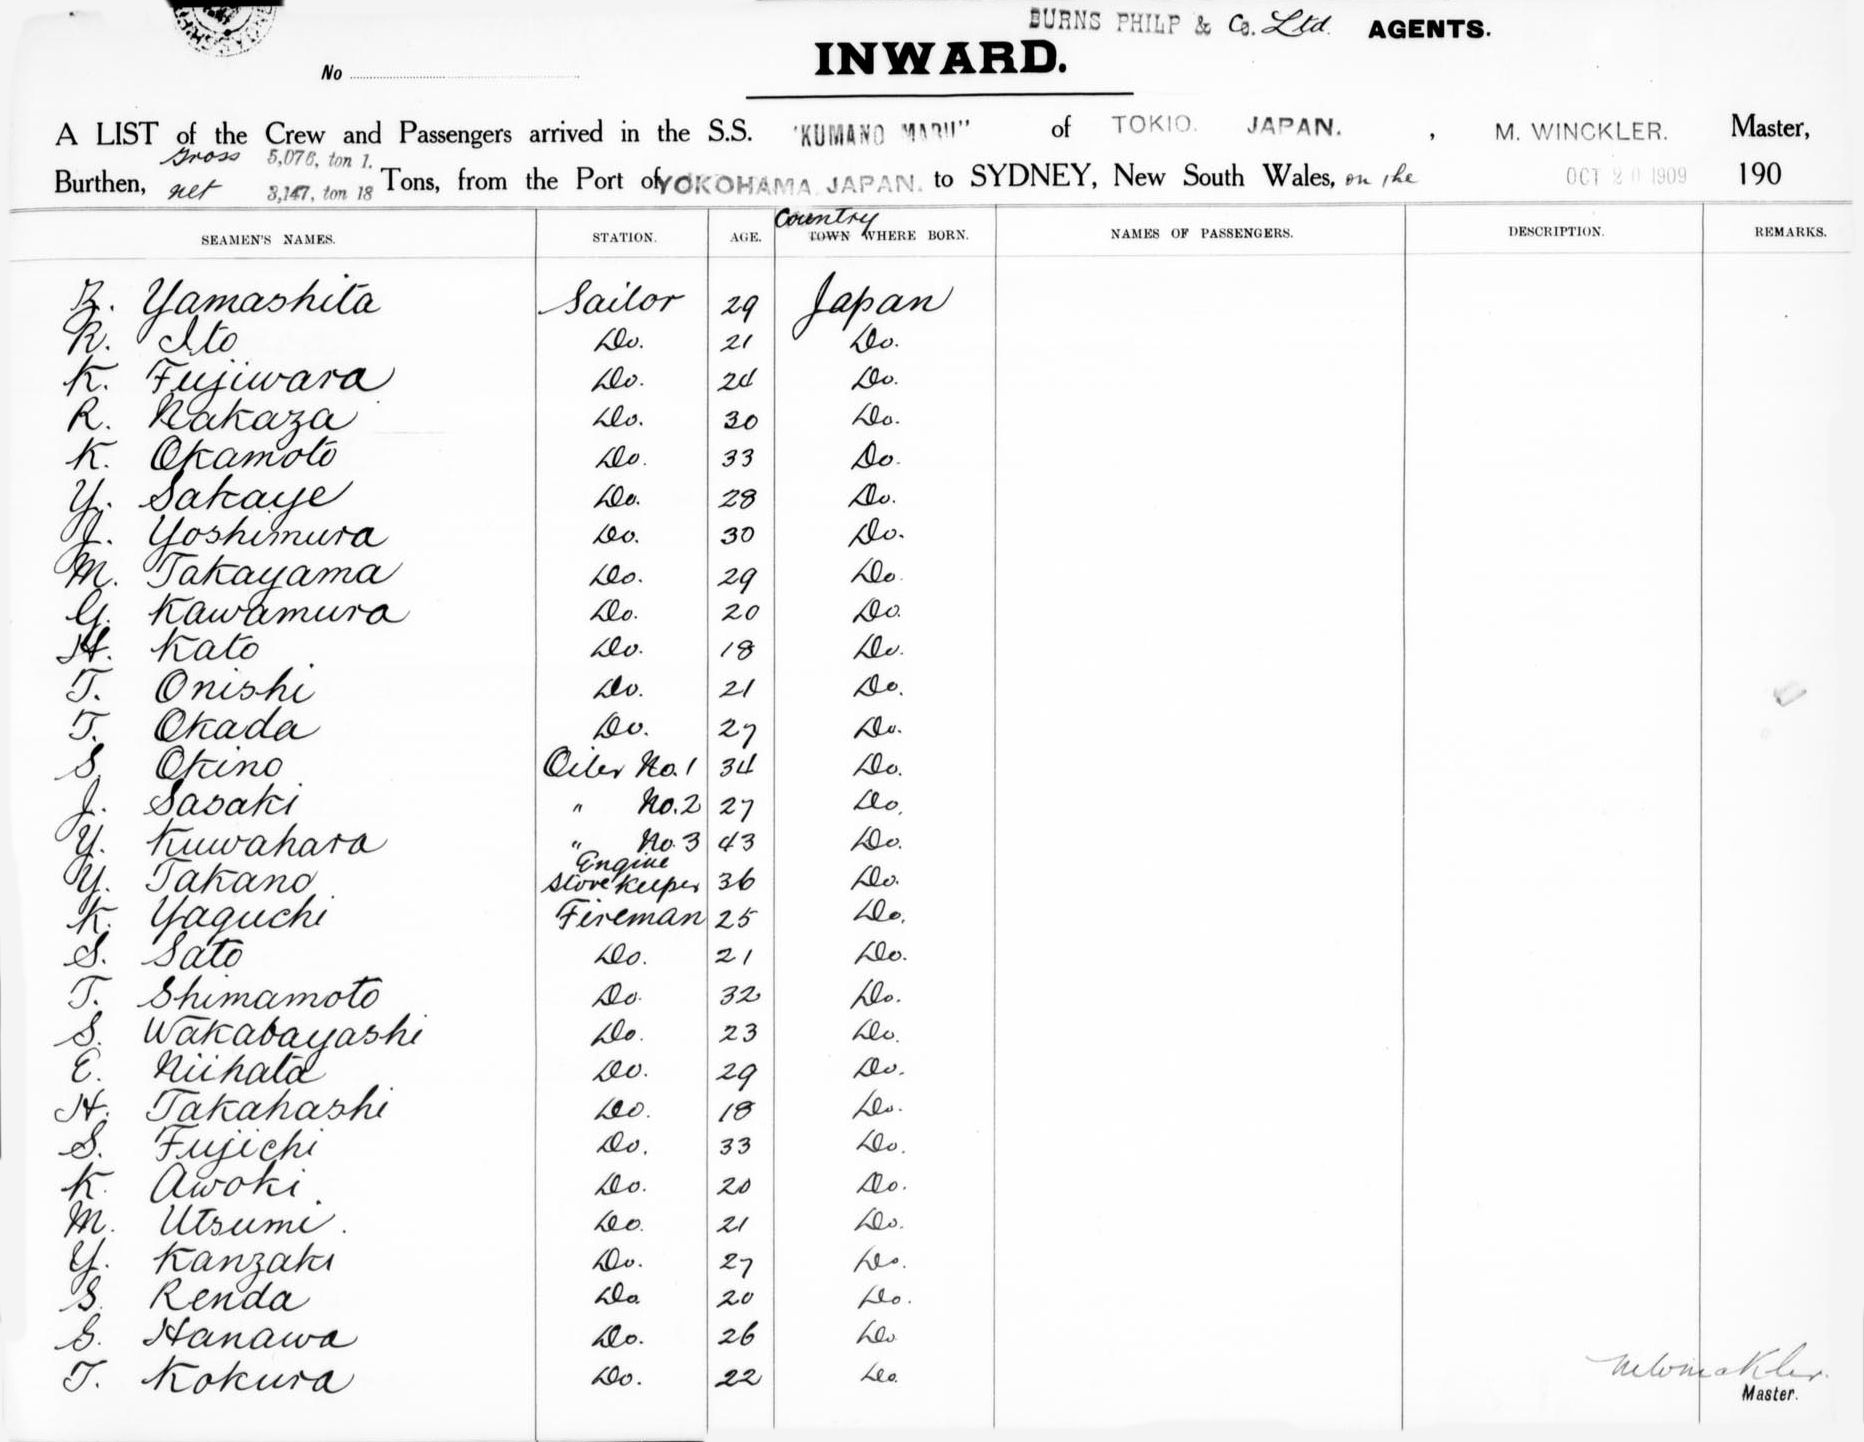 BURNS PHILP & Co. Ltd. AGENTS.
INWARD.
No
A LIST of the Crew and Passengers arrived in the S.S. "KUMANO MARU" of TOKIO. JAPAN. , M. WINCKLER. Master,
Gross 5,076, ton 1.
Burthen, net 3,147, ton 18 Tons, from the Port of YOKOHAMA JAPAN. to SYDNEY, New South Wales, on the OCT 20 1909 190
Country
SEAMEN'S NAMES. STATION. AGE. TOWN WHERE BORN. NAMES OF PASSENGERS. DESCRIPTION. REMARKS.
Yamashita Sailor 29 Japan
R. Ito Do. 21 Do.
K. Fujiwara Do. 24 Do.
R. Nakaza Do. 30 Do.
K. Okamoto Do. 33 Do.
Y. Sakaye Do. 28 Do.
Y. Yoshimura Do. 30 Do.
M. Takayama Do. 29 Do.
G. Kawamura Do. 20 Do.
H. Kato Do. 18 Do.
T. Onishi Do. 21 Do.
T. Okada Do. 27 Do.
S. Okino Oiler No. 1 34 Do.
J. Sasaki " No. 2 27 Do.
Y. Kuwahara " No. 3 43 Do.
Y. Takano Engine Storekeeper 36 Do.
K. Yaguchi Fireman 25 Do.
S. Sato Do. 21 Do.
T. Shimamoto Do. 32 Do.
S. Wakabayashi Do. 23 Do.
E. Niihata Do. 29 Do.
H. Takahashi Do. 18 Do.
S. Fujichi Do. 33 Do.
K. Awoki Do. 20 Do.
M. Utsumi. Do. 21 Do.
Y. Kanzaki Do. 27 Do.
S. Renda Do. 20 Do.
S. Hanawa Do. 26 Do.
T. Kokura Do. 22 Do.
M Winckler.
Master.